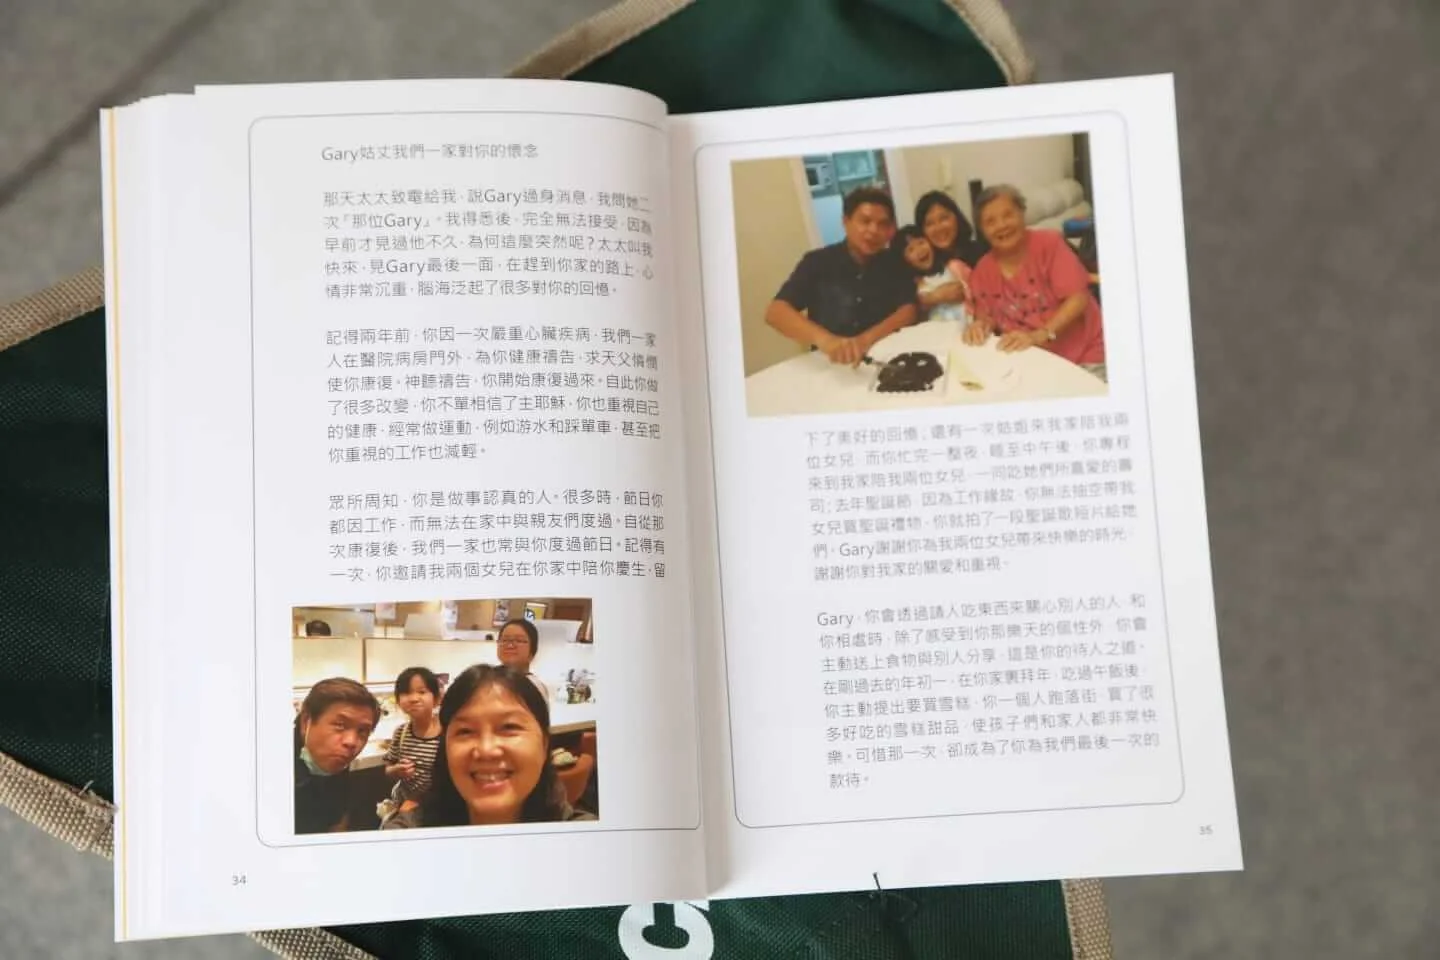 Gary姑丈我們一家對你的懷念
那天太太致電給我，說Gary過身消息，我問她二
次「那位Gary」。我得悉後，完全無法接受，因為
早前才見過他不久，為何這麼突然呢？太太叫我
快來，見Gary最後一面，在趕到你家的路上，心
情非常沉重，腦海泛起了很多對你的回憶。
記得兩年前，你因一次嚴重心臟疾病，我們一家
人在醫院病房門外，為你健康禱告，求天父憐憫
使你康復。神聽禱告，你開始康復過來。自此你做
了很多改變，你不單相信了主耶穌，你也重視自己
的健康，經常做運動，例如游水和踩單車，甚至把
你重視的工作也減輕。
眾所周知，你是做事認真的人。很多時，節日你
都因工作，而無法在家中與親友們度過。自從那
次康復後，我們一家也常與你度過節日。記得有
一次，你邀請我兩個女兒在你家中陪你慶生，留
34
下了美好的回憶；還有一次姑姐來我家陪我兩
位女兒，而你忙完一整夜，睡至中午後，你專程
來到我家陪我兩位女兒，一同吃她們所喜愛的壽
司；去年聖誕節，因為工作緣故，你無法抽空帶我
女兒買聖誕禮物，你就拍了一段聖誕歌短片給她
們。Gary謝謝你為我兩位女兒帶來快樂的時光，
謝謝你對我家的關愛和重視。
Gary，你會透過請人吃東西來關心別人的人，和
你相處時，除了感受到你那樂天的個性外，你會
主動送上食物與別人分享，這是你的待人之道。
在剛過去的年初一，在你家裏拜年，吃過午飯後，
你主動提出要買雪糕，你一個人跑落街，買了很
多好吃的雪糕甜品，使孩子們和家人都非常快
樂。可惜那一次，卻成為了你為我們最後一次的
款待。
35